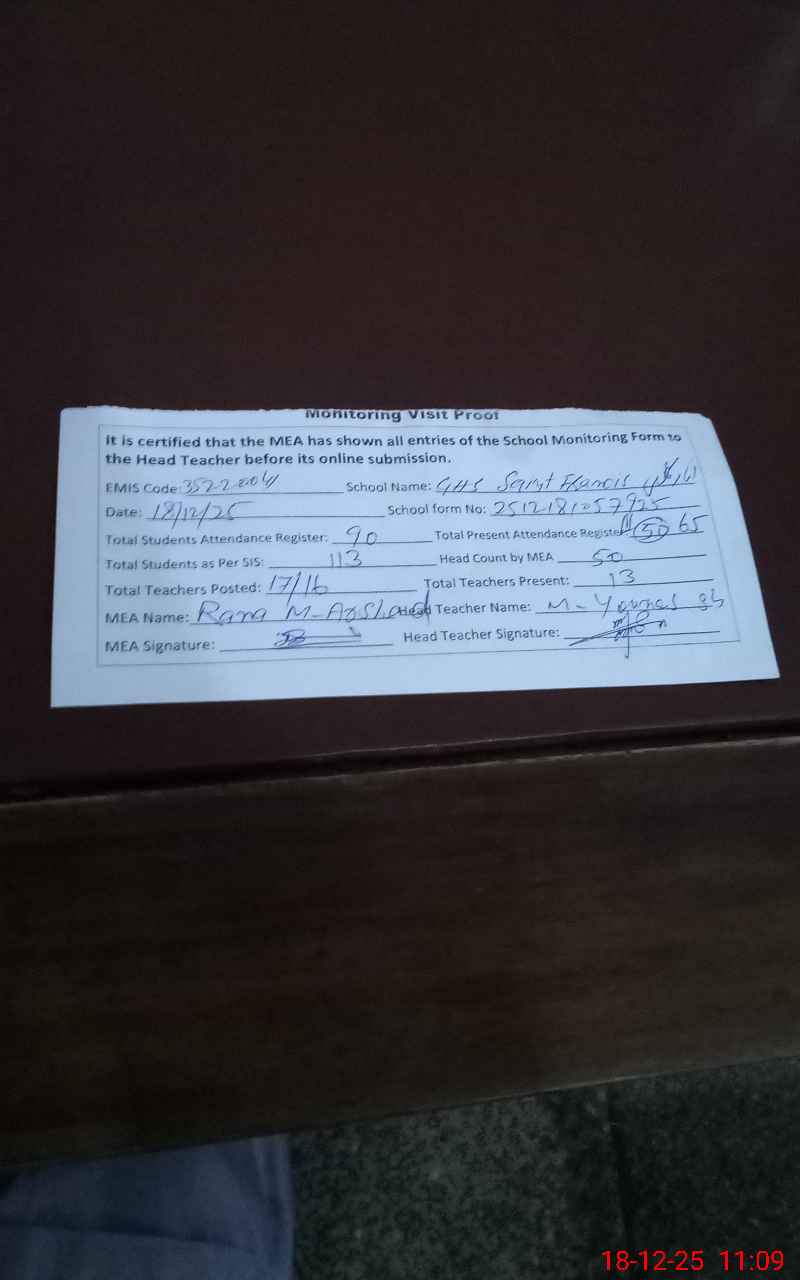 Monitoring Visit Proof
It is certified that the MEA has shown all entries of the School Monitoring Form to
the Head Teacher before its online submission.
EMIS Code: School Name: GHS Saint Francis
Date: 18/12/25 School form No: 2512181057925
Total Students Attendance Register: 90 Total Present Attendance Register 50 65
Total Students as Per SIS: 113 Head Count by MEA 50
Total Teachers Posted: 17/16 Total Teachers Present: 13
MEA Name: Rana M-Arshad Head Teacher Name: M-Younas
MEA Signature: Head Teacher Signature:
18-12-25 11:09